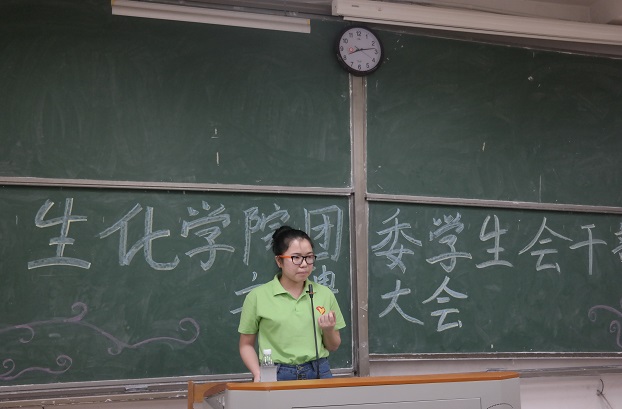 生化学院团委学生会干
大会